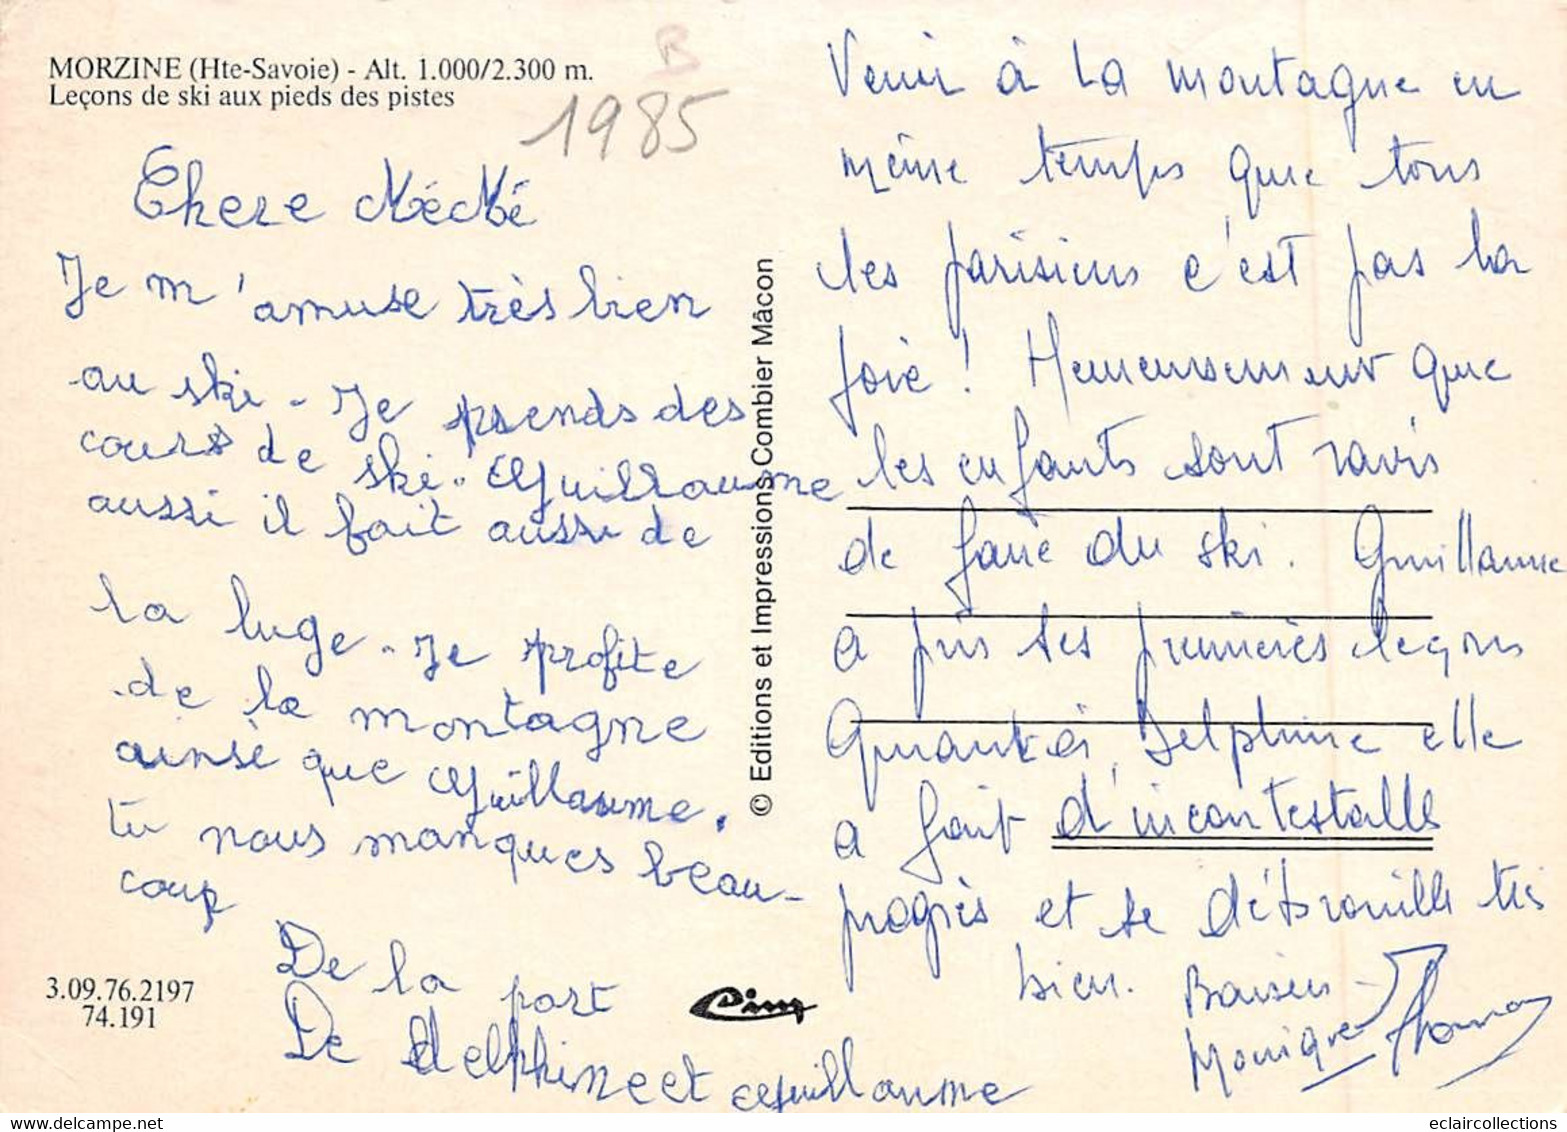 MORZINE (Hte-Savoie) - Alt. 1.000/2.300 m.
Leçons de ski aux pieds des pistes
B
1985
Chere MéMé
Je m'amuse très bien
au ski. Je prends des
cours de ski. Guillaume
aussi il fait aussi de
la luge. Je profite
de la montagne
ainsi que Guillaume.
tu nous manques beau-
coup
De la part
De Delphine et Guillaume
3.09.76.2197
74.191
© Editions et Impressions Combier Mâcon
Cim
Venir à la montagne en
même temps que tous
les parisiens c'est pas la
joie ! Heureusement que
les enfants sont ravis
de faire du ski. Guillaume
a pris ses premières leçons
Quant à Delphine elle
a fait d'incontestable
progrès et se débrouille très
bien. Baisers
Monique
eclaircollections.com